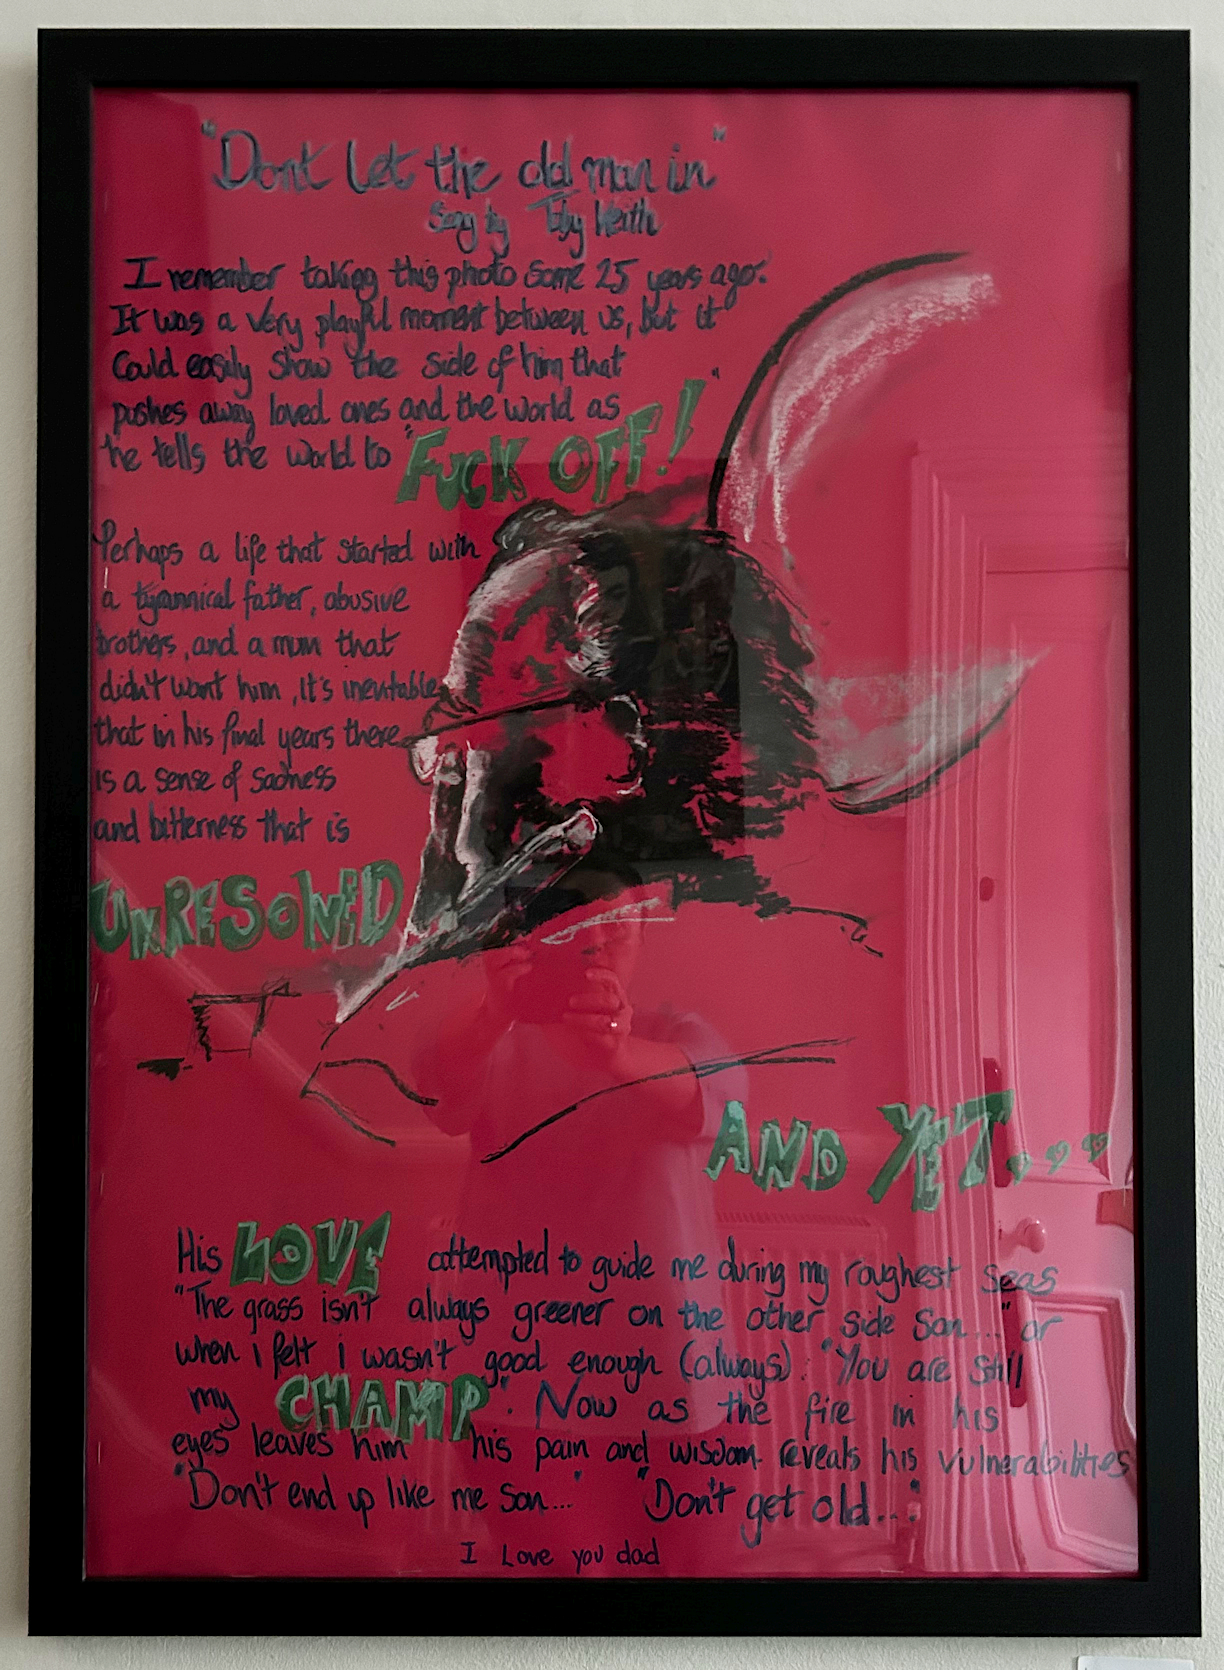 "Dont let the old man in"
Song by Toby Keith
I remember taking this photo some 25 years ago.
It was a very playful moment between us, but it
Could easily show the side of him that
pushes away loved ones and the world as
he tells the world to "FUCK OFF!"
Perhaps a life that started with
a tyrannical father, abusive
brothers, and a mum that
didn't want him, it's inevitable
that in his final years there
is a sense of sadness
and bitterness that is
UNRESOLVED
AND YET...
His LOVE attempted to guide me during my roughest seas
"The grass isn't always greener on the other side Son..." or
when i felt i wasn't good enough (always): "You are still
my CHAMP". Now as the fire in his
eyes leaves him his pain and wisdom reveals his vulnerabilities
"Don't end up like me Son..." "Don't get old..."
I Love you dad